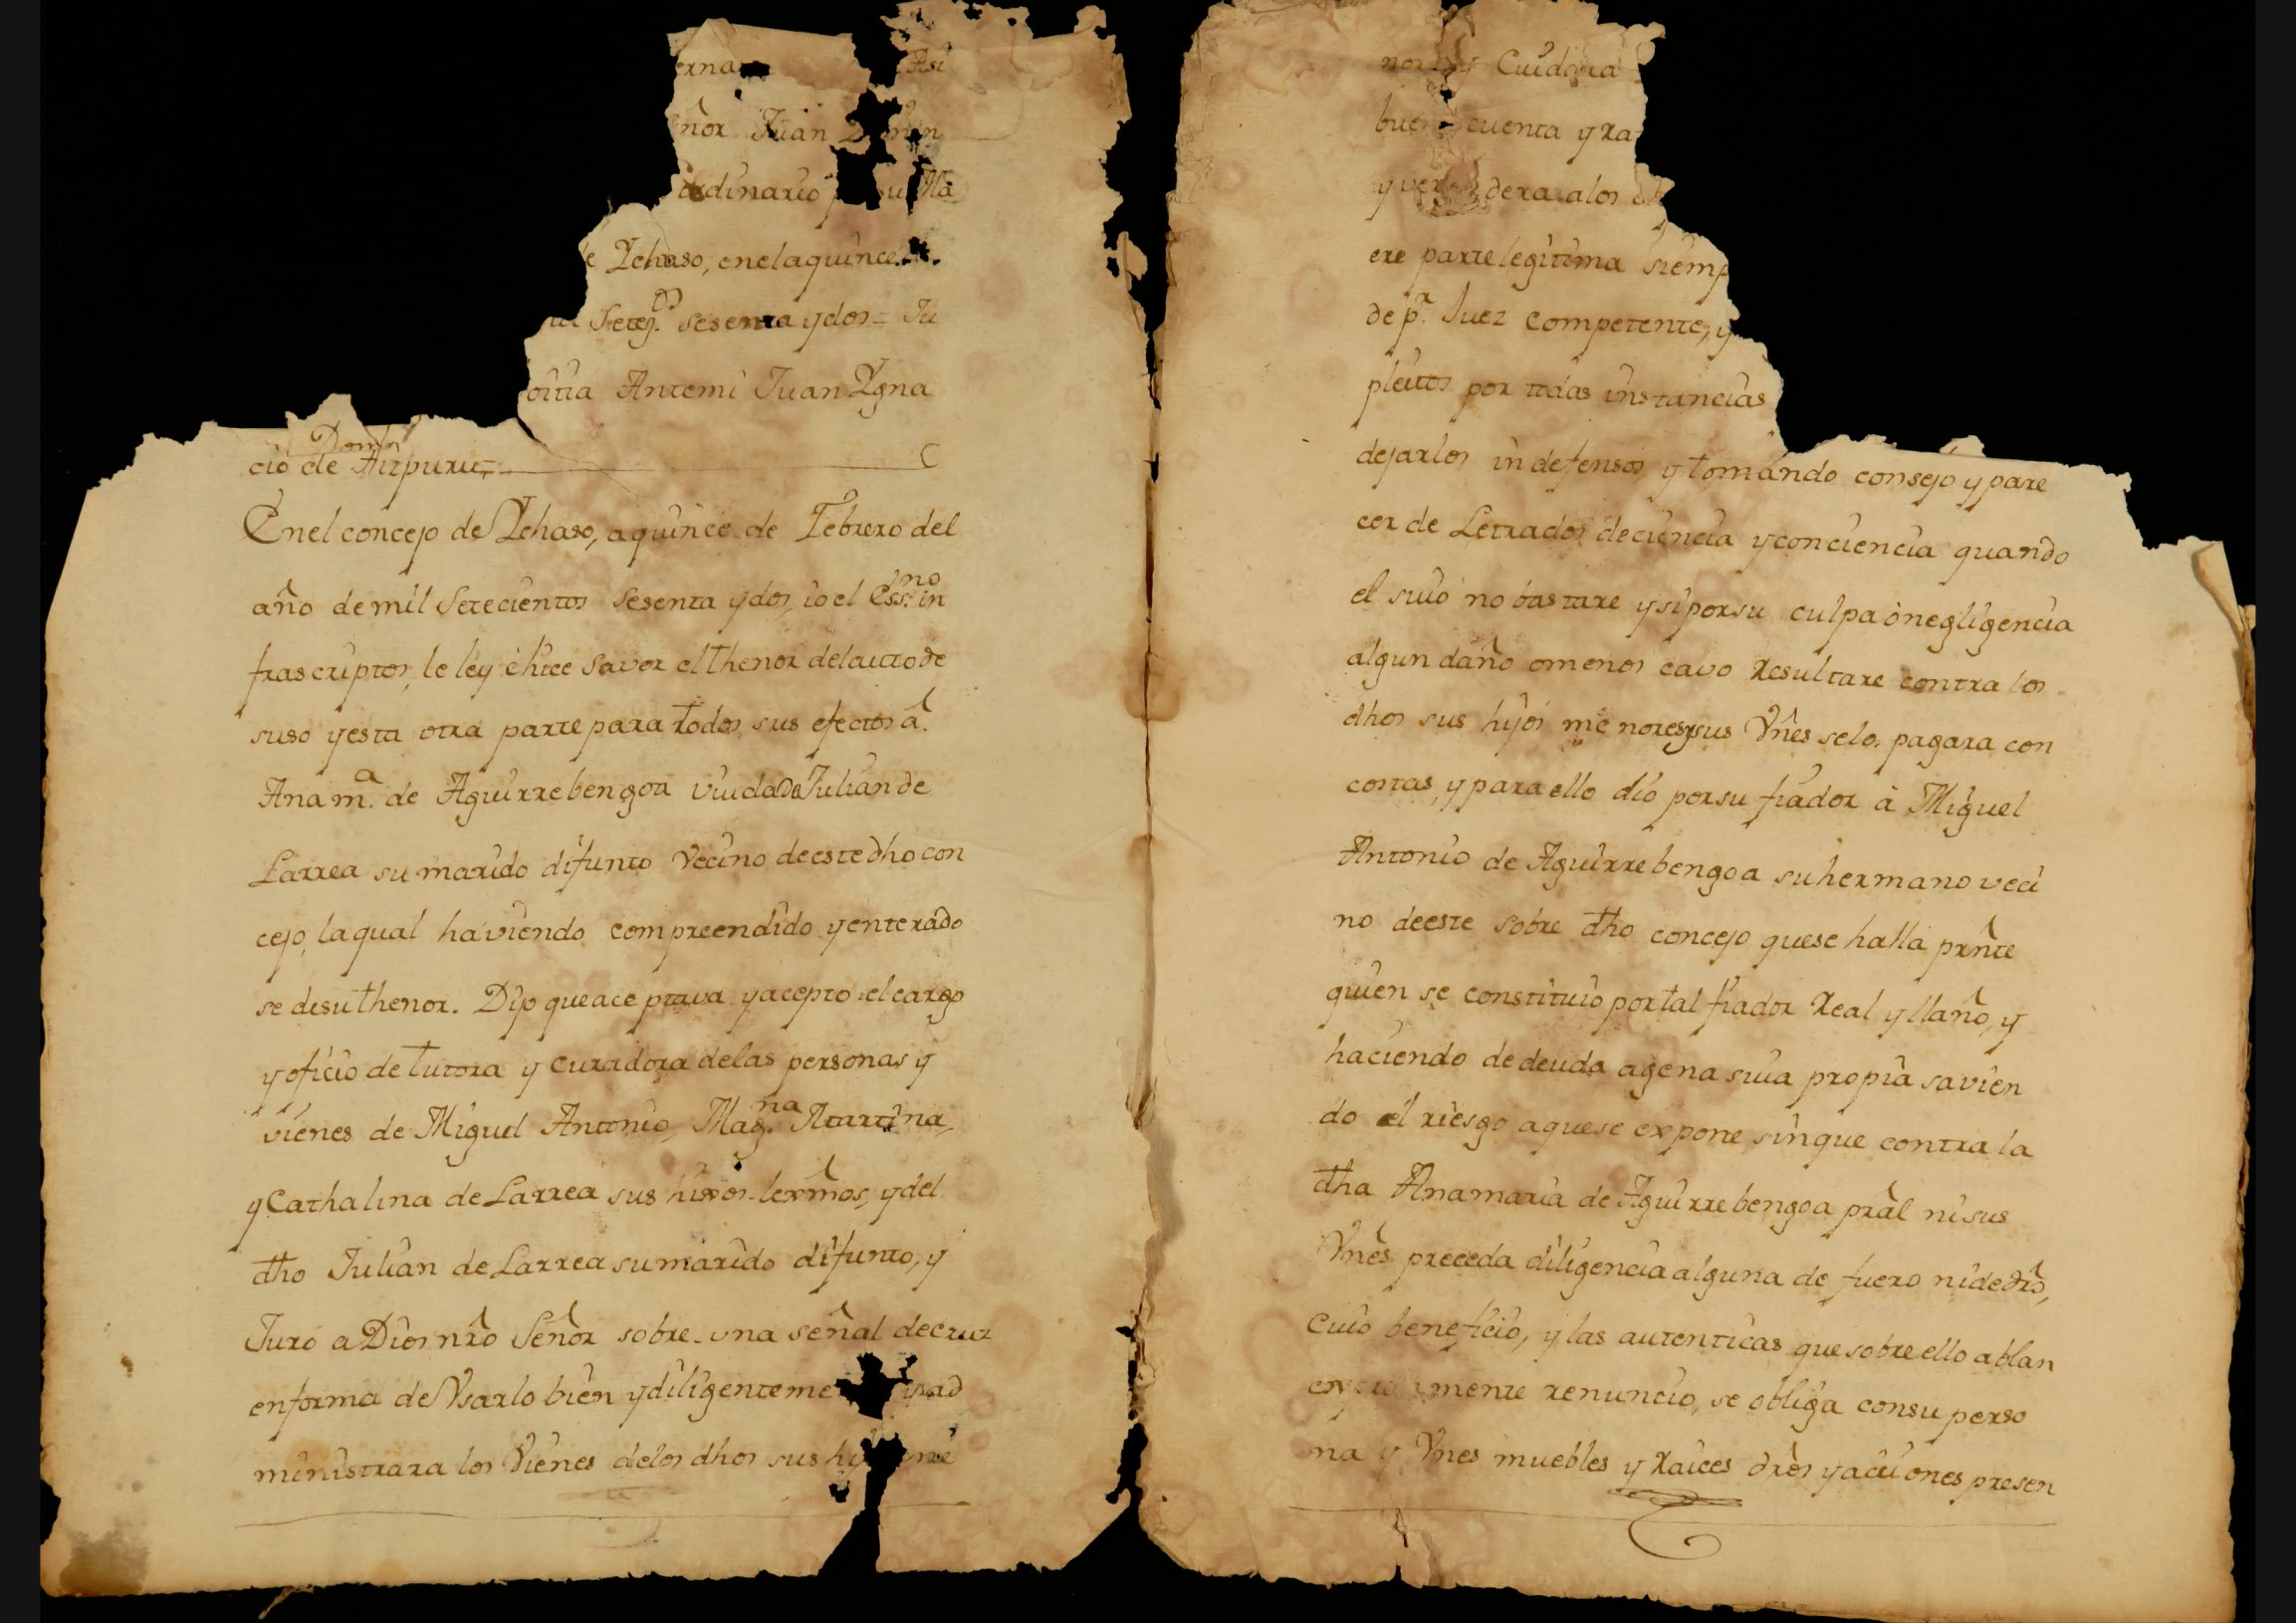 erna Asi
ñor Juan Domin
ordinario su Ma
de Ychaso, en el a quince
SeteZ.os sesenta y dos = Ju
oitia Antemi Juan Ygna
cio de Aizpuru =
En el concejo de Ychaso, a quince de Febrero del
año de mil Setecientos sesenta y dos, io el Ess.no in
frascriptos, le ley è hice saver el thenor del auto de
suso y esta otra parte para todos sus efectos â
Ana m.a de Aguirrebengoa viuda de Julian de
Larrea su marido difunto vecino de este dho con
cejo, la qual haviendo compreendido y enterado
se di su thenor. Dijo que aceptava y acepto el cargo
y oficio de tutora y curadora de las personas y
vienes de Miguel Antonio, Mag.na Martina,
y Cathalina de Larrea sus hixos lexmos, y del
dho Julian de Larrea su marido difunto, y
Juro a Dios nro Señor sobre una señal de cruz
en forma de Vsarlo bien y diligenteme y ad
ministrara los Vienes de los dhos sus hij me
nores y Cuidara
buena cuenta y ra
y verdadera a los
ere parte legitima siemp
de p.r Juez competente, y
pleitos por todas instancias
dejarlos indefensos, y tomando consejo y pare
cer de Letrados de ciencia y conciencia quando
el suio no bastare y si por su culpa ò negligencia
algun daño o menos cavo Resultare contra los
dhos sus hijos menores y sus Vnes se los pagara con
costas, y para ello dio por su fiador à Miguel
Antonio de Aguirrebengoa su hermano veci
no de este sobre dho concejo que se halla prnte
quien se constituio por tal fiador Real y llano, y
haciendo de deuda agena suia propia savien
do el riesgo a que se expone sin que contra la
dha Ana maria de Aguirrebengoa pral ni sus
Vnes preceda diligencia alguna de fuero ni de dro,
cuio beneficio, y las autenticas que sobre ello ablan
expresamente renuncio, se obliga con su perso
na y Vnes muebles y Raices dros y acciones presen